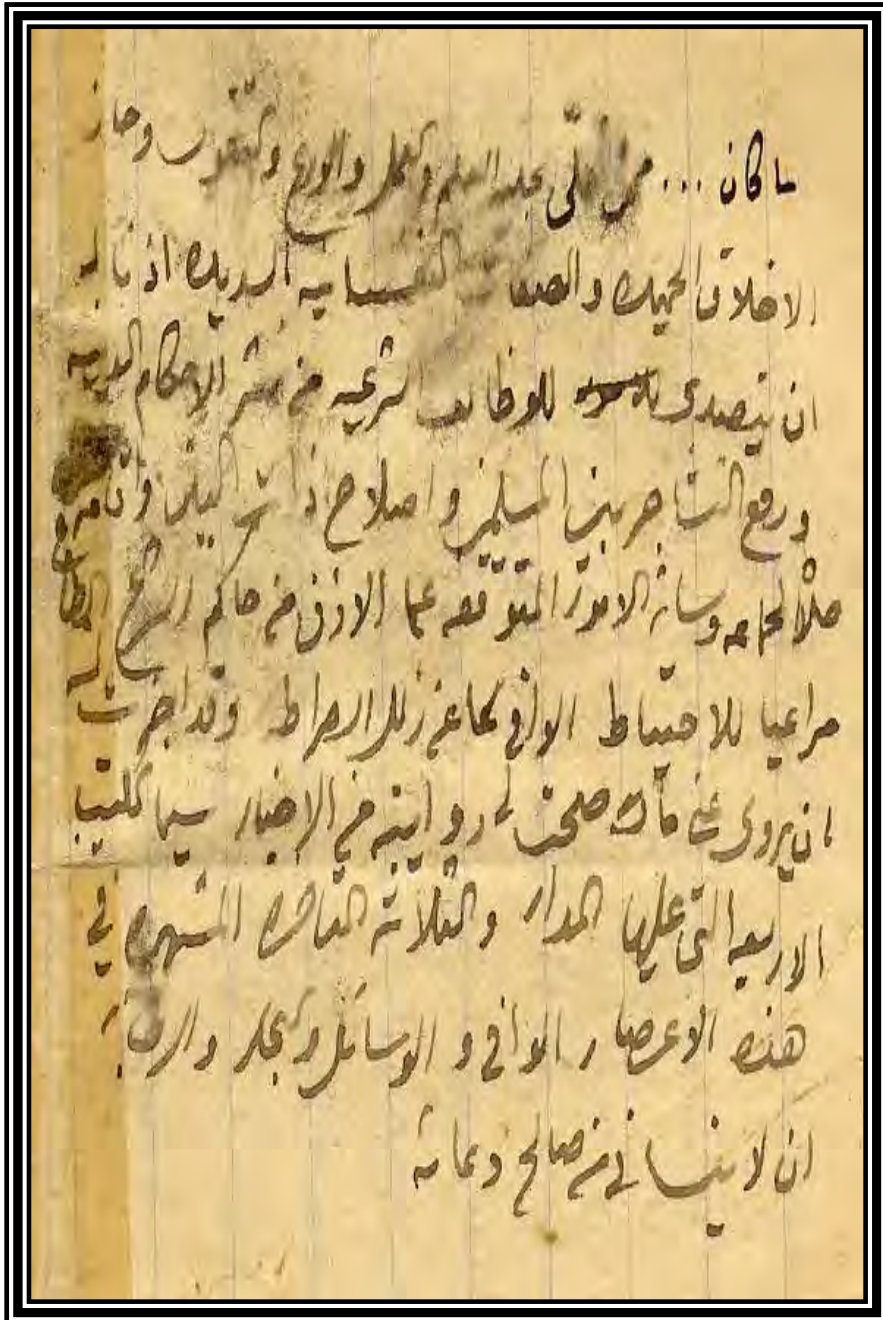 ما كان ... ممن تحلى بحلية العلم والعمل والورع والتقوى وحاز
الاخلاق الحميده والصفات النفسانيه السديده اذنا له
ان يتصدى للوظائف الشرعيه من نشر الاحكام الدينيه
ورفع التشاجر بين المسلمين واصلاح ذات البين واقامه
صلاة الجماعه وسائر الامور المتوقفه على الاذن من حاكم الشرع المطاع
مراعيا للاحتياط الواقي لمحاذ عن زلل الصراط وقد اجزت له
ان يروى عني ما صحت لي روايته من الاخبار سيما الكتب
الاربعه التي عليها المدار والثلاثة المتاخره المشتهره في
هذه الاعصار الوافي و الوسائل والبحار وارجائي
ان لا ينساني من صالح دعائه